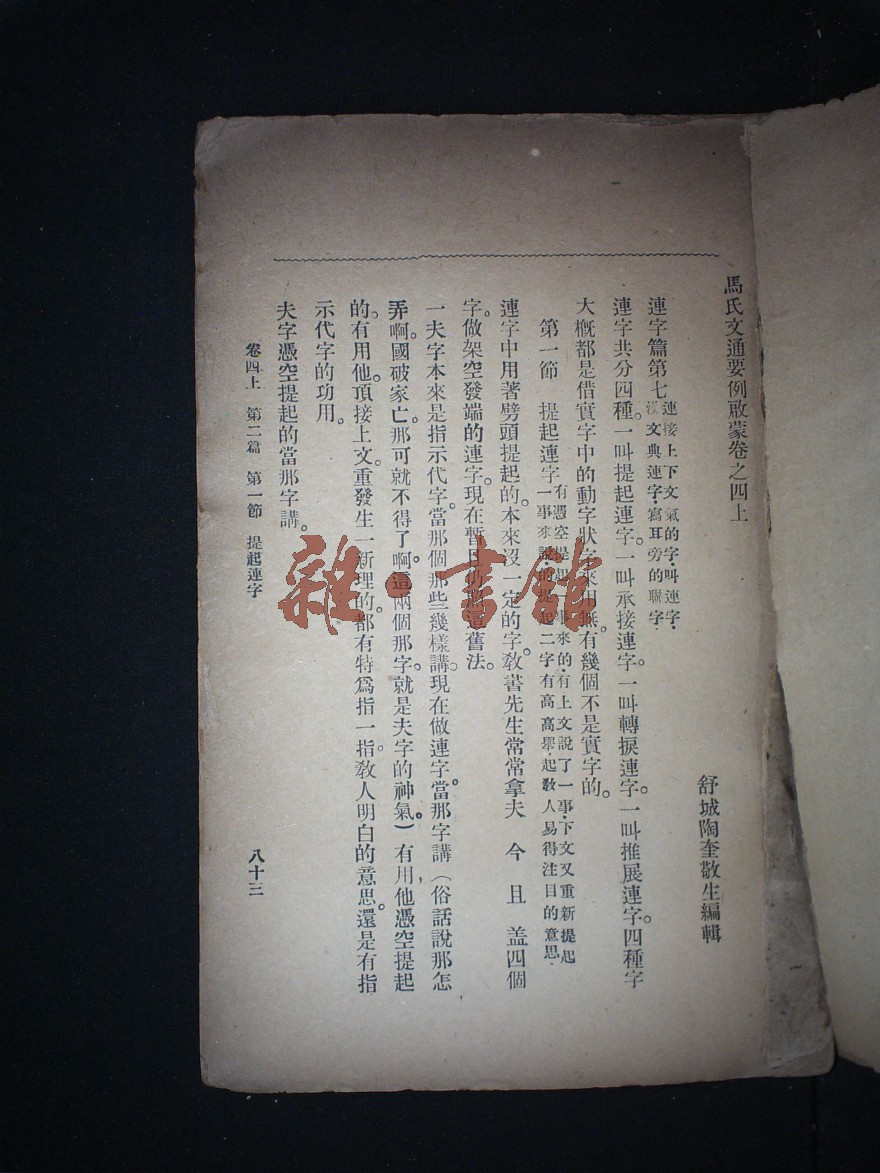 馬氏文通要例啟蒙卷之四上
舒城陶奎敬生編輯
連字篇第七
連接上下文氣的字·叫連字·
漢文典連字·寫耳旁的聯字·
連字共分四種。一叫提起連字。一叫承接連字。一叫轉捩連字。一叫推展連字。四種字
大概都是借實字中的動字狀字來用。無有幾個不是實字的。
第一節 提起連字
有憑空提起一事來的·有上文說了一事·下文又重新提起
一事來說的·提起二字有高高舉起教人易得注目的意思·
連字中用著劈頭提起的。本來沒一定的字。教書先生常常拿夫 今 且 蓋四個
字。做架空發端的連字。現在暫且仍照這舊法。
一夫字本來是指示代字。當那個那些幾樣講。現在做連字。當那字講(俗話說那怎
弄啊。國破家亡。那可就不得了啊。這兩個那字。就是夫字的神氣。)有用他憑空提起
的。有用他頂接上文重發生一新理的。都有特爲指一指。教人明白的意思。還是有指
示代字的功用。
夫字憑空提起的當那字講。
卷四上 第二篇 第一節 提起連字
八十三
雜·書館